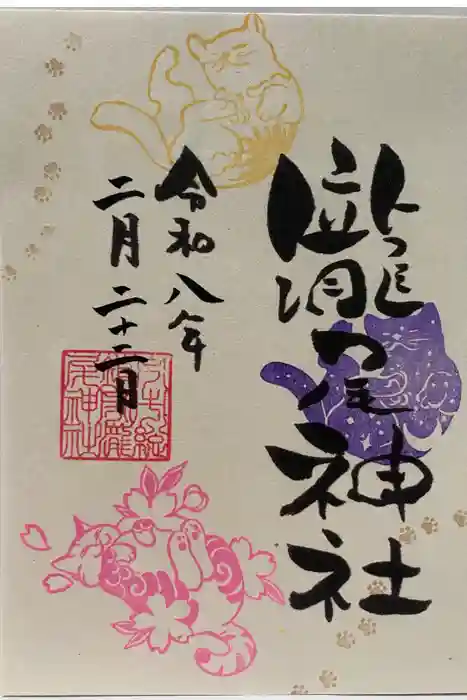 瀧尾神社
令和八年
二月二十二日